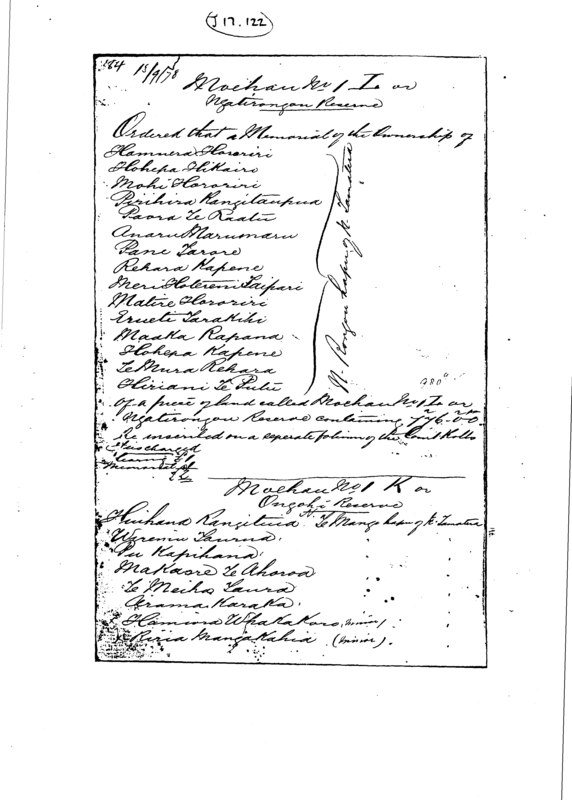 J 17.122
184 15/9/78
Moehau No 1 I or
Ngatirongou Reserve
Ordered that a Memorial of the Ownership of
Hamuera Hororiri
Hohepa Hikairo
Mohi Hororiri
Pirihira Rangitaupua
Paora Te Raatu
Anaru Marumaru
Pane Tarore
Rehara Kapene
Meri Hotereni Taipari
Matire Hororiri
Erueti Tarakihi
Maaka Rapana
Hohepa Kapene
Te Mura Rehara
Hiriani Te Putu
N. Rongou hapu of N. Tamatera
of a piece of land called Moehau No 1 I or
Ngatirongou Reserve containing
a r p
776. 2. 0
be inscribed on a seperate folium of the Court Rolls
Memorial
Moehau No 1 K or
Reserve
Hirihana Rangituia Te Manga hapu of N. Tamatera
Wiremu Taurua
Pu Kapihana
Makaore Te Ahoroa
Te Meiha Taura
Arama Karaka
Hamiora Whakakoro (minor)
Riria Mangakahia (minor)